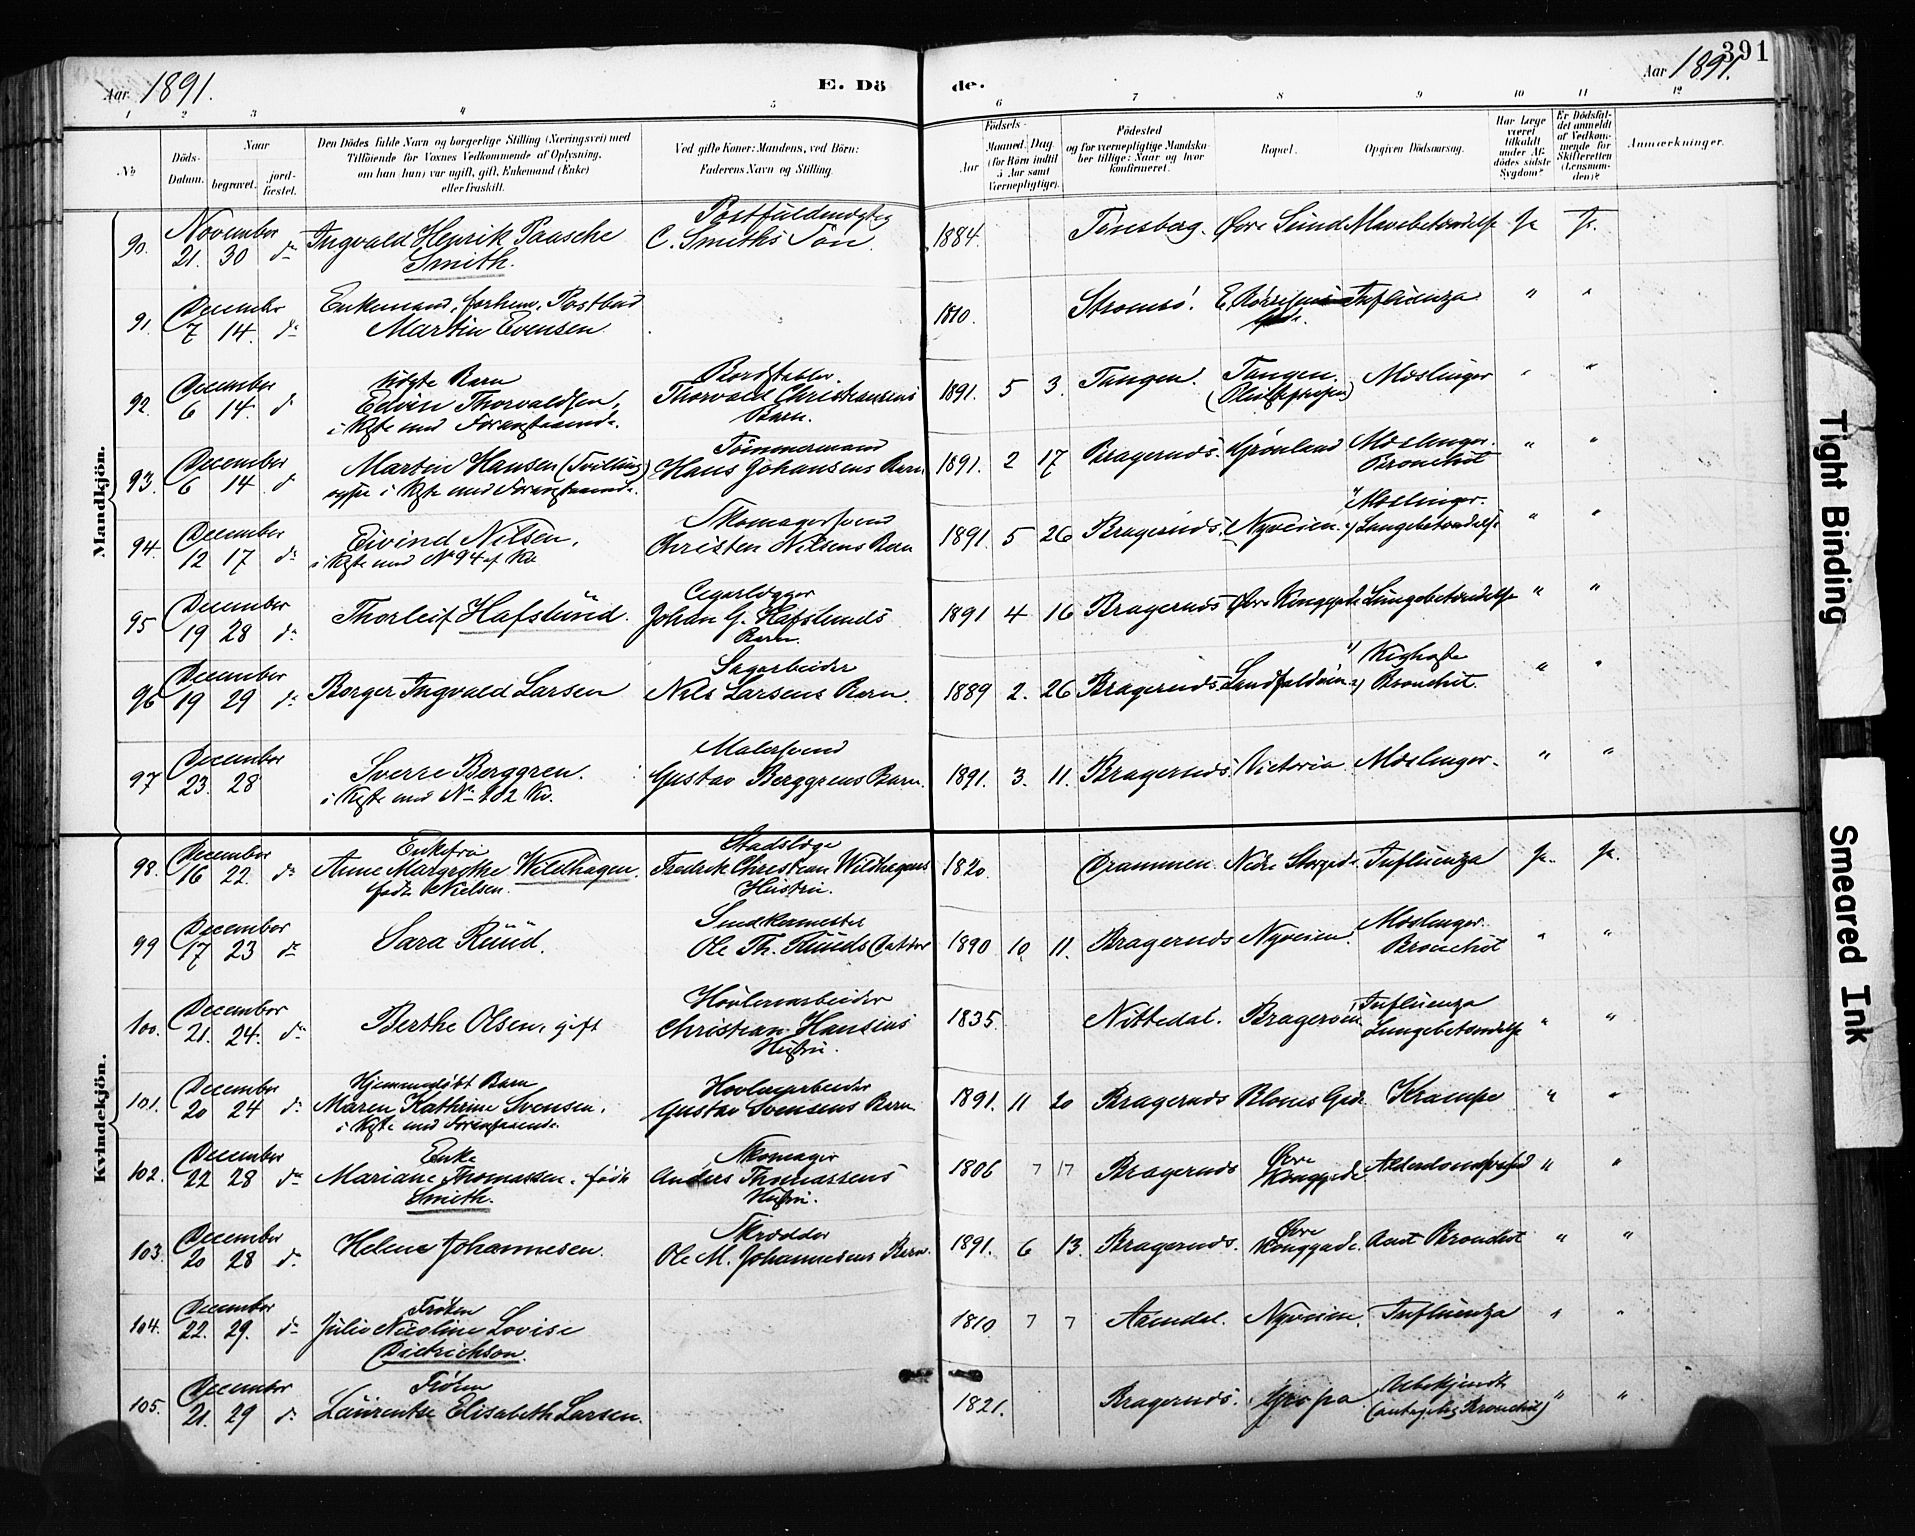 391
Aar 1891.
E. Dö
de.
Aar 1891.
1 2 3 4 5 6 7 8 9 10 11 12
No
Döds-Datum.
Naar
begravet.
jord-fæstet.
Den Dödes fulde Navn og borgerlige Stilling (Næringsvei) med
Tilföiende for Voxnes Vedkommende af Oplysning,
om han (hun) var ugift, gift, Enkemand (Enke)
eller fraskilt.
Ved gifte Koner: Mandens, ved Börn:
Faderens Navn og Stilling.
Födsels-
Aar
Maaned. Dag.
(for Börn indtil
5 Aar samt
Værnepligtige).
Födested
og for værnepligtige Mandska-
ber tillige: Naar og hvor
konfirmeret.
Bopæl.
Opgiven Dödsaarsag.
Har Læge
været
tilkaldt
under Af-
dödes sidste
Sygdom?
Er Dödsfal-
det anmeldt
af Vedkom-
mende for
Skifteretten
(Lensman-
den)?
Anmærkninger.
Mandkjön.
November Postfuldmægtig
90. 21. 30 do Ingvald Henrik Paasche C. Smiths Søn. 1884. Tønsberg. Øvre Sund Mavebetændelse Ja Ja.
Smith.
December Enkemand, forhen. Postbud
91. 7 14. do Martin Evensen 1810. Strømsø. Influenza " "
December Udøpte Barn Bordstabler
92. 6 14. do Edvin Thorvaldsen, Thorvald Christiansens 1891. 5 3. Tangen. Tangen. Mæslinger " "
i Kiste med Foranstaaende. Barn.
December Tømmermand
93. 6 14 do Martin Hansen (Tvilling) Hans Johansens Barn 1891. 2 17 Bragernæs. Grønland Mæslinger. Bronchit " "
i Kiste med Foranstaaende.
December Skomagersvend 1) Mæslinger.
94. 12 17 do Eivind Nilsen, Christen Nilsens Barn 1891. 5 26 Bragernæs. Nyveien. 2) Lungebetændelse " "
i Kiste med No 94 af Kv.
December Cigarlægger
95 19 28 do Thorleif Hafslund. Johan G. Hafslunds 1891 4 16 Bragernæs Øvre Konggade Lungebetændelse " "
Barn.
December Sagarbeider 1) Kighoste
96 19 29 do Borger Ingvald Larsen Nils Larsens Barn. 1889 2. 26 Bragernæs. Landfaldveien 2) Bronchit. " "
December Malersvend
97 23. 28 Sverre Berggren. Gustav Berggrens Barn. 1891. 3. 11. Bragernæs. Victoria Mæslinger. " "
i Kiste med No 102 Kv.
Kvindekjön.
December Enkefru Stadslæge
98. 16 22. do Anne Margrethe Wildhagen. Fredrik Christian Wildhagens 1820. Drammen. Nedre Storgade Influenza Ja. Ja.
født Nielsen. Hustru.
December Mæslinger.
99 17 23 do Sara Ruud. Ole Th. Ruuds Datter 1890 10 11. Bragernæs Nyveien. Bronchit " "
December Høvleriarbeider Influenza
100. 21. 24. do Berthe Olsen, gift Christian Hansens 1835. Nittedal. Lungebetændelse " "
Hustru.
December Hjemmedøbt Barn Høvleriarbeider
101. 20 24 do Maren Kathrine Svensen. Gustav Svensens Barn 1891. 11 20 Bragernæs Krampe " "
i Kiste med Foranstaaende
December Enke Skomager Øvre
102. 22 28 do Mariane Thomassen, født Anders Thomassens 1806 7 17 Bragernæs Konggade Alderdomssvaghed " "
Smith. Hustru.
December Skrædder Øvre
103. 20 28 do Helene Johannesen. Ole M. Johannesens Barn 1891. 6 13. Bragernæs. Konggade. Acut Bronchit " "
December Frøken
104. 22. 29. do Julie Nicoline Lovise 1810 7 7 Arendal. Nyveien. Influenza " "
Dietrichson.
December Frøken Ubekjendt
105. 21. 29 do Laurentze Elisabeth Larsen. 1821. Bragernæs. (antagelig Bronchit) " "
Tight Binding
Smeared Ink